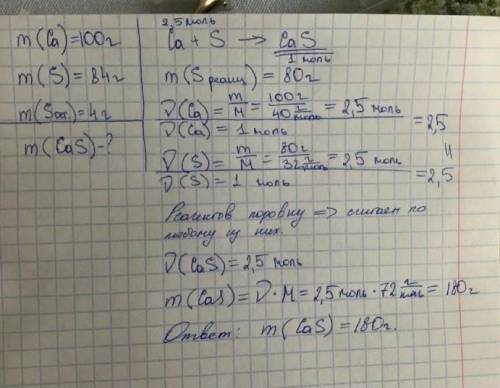 m(Ca)=100г
m(S)=84г
m(Sост)=4г
m(CaS)-?
2,5 моль
Ca + S → CaS
1 моль
m(S реакц) = 80г
ν(Ca) = m/M = 100г/40 г/моль = 2,5 моль
ν(Ca) = 1 моль
= 2,5
ν(S) = m/M = 80г/32 г/моль = 2,5 моль
ν(S) = 1 моль
= 2,5
Реагентов поровну => считаем по
любому из них.
ν(CaS) = 2,5 моль
m(CaS) = ν · M = 2,5 моль · 72 г/моль = 180г
Ответ: m(CaS) = 180г.